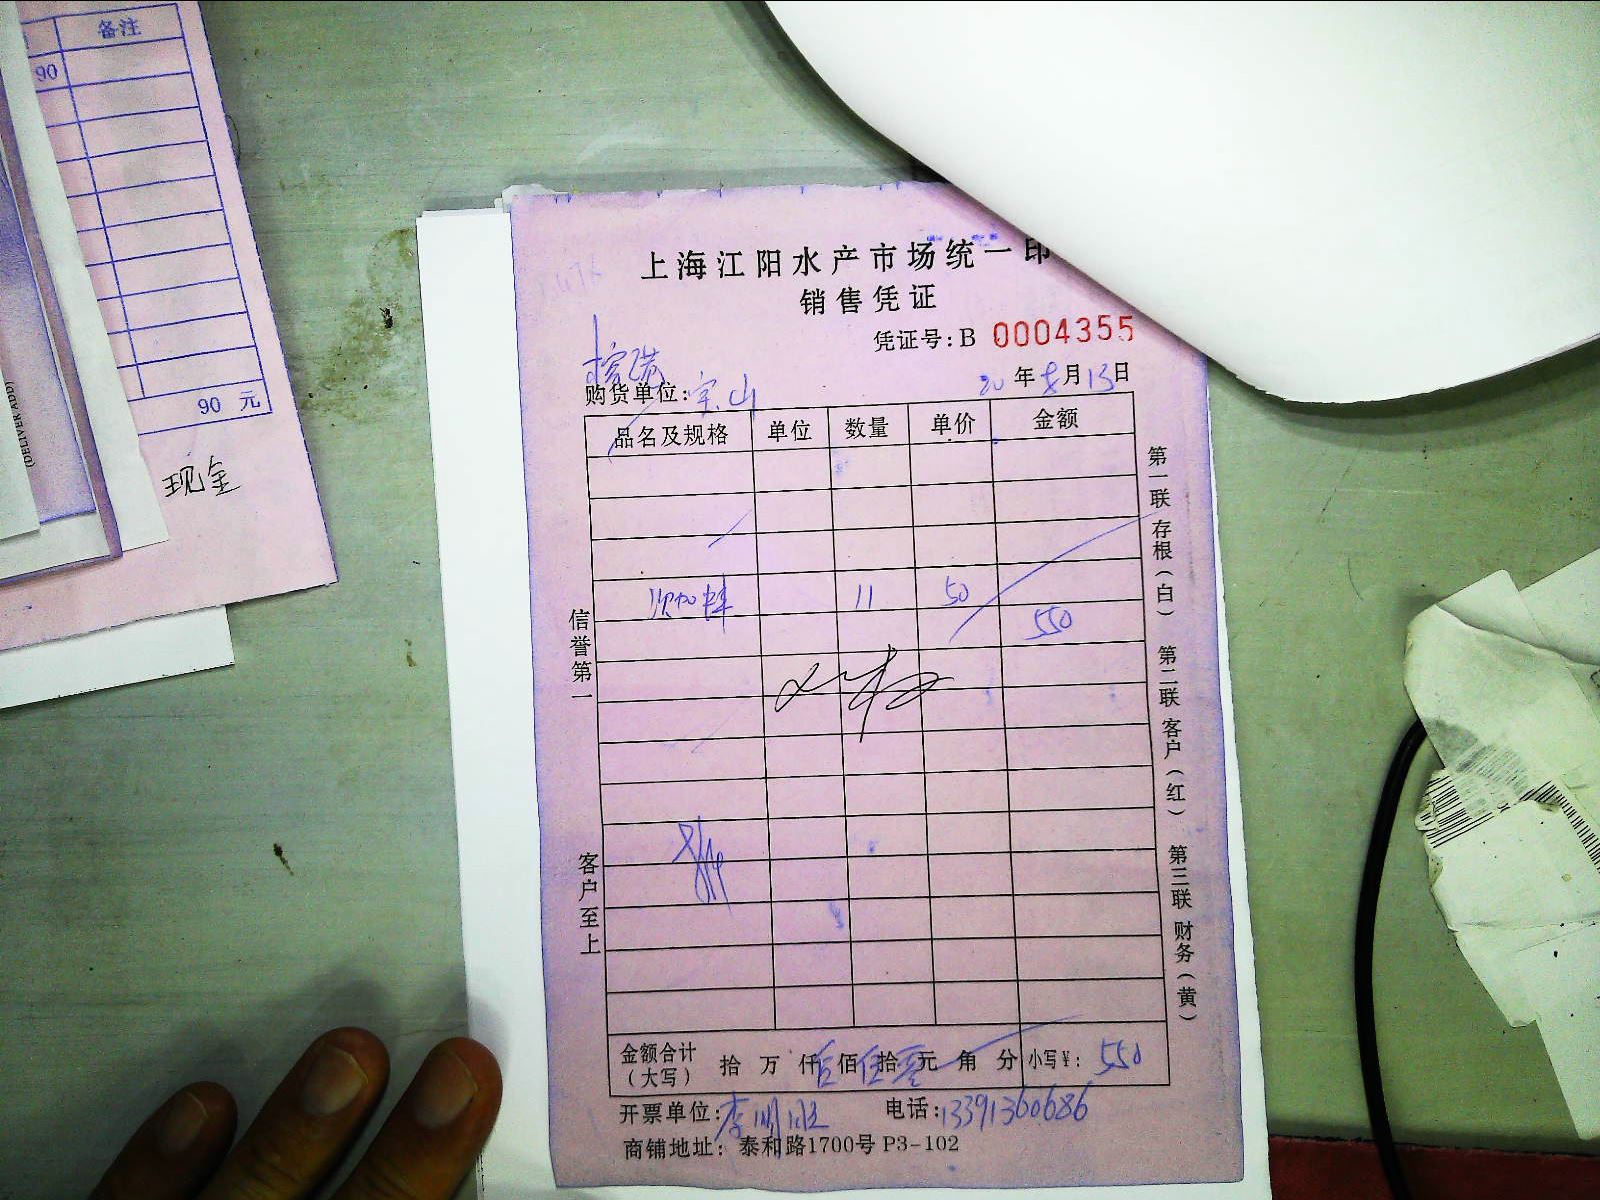 备注
90
90 元
现金
(DELIVER ADD)
上海江阳水产市场统一印
销售凭证
凭证号: B 0004355
购货单位: 宝山
20 年 月 13 日
品名及规格 单位 数量 单价 金额
11 50
550
信誉第一
客户至上
第一联 存根(白) 第二联 客户(红) 第三联 财务(黄)
金额合计(大写) 拾 万 仟 伍 佰 伍 拾 零 元 角 分 小写¥: 550
开票单位: 李明
电话: 13391360686
商铺地址: 泰和路1700号 P3-102